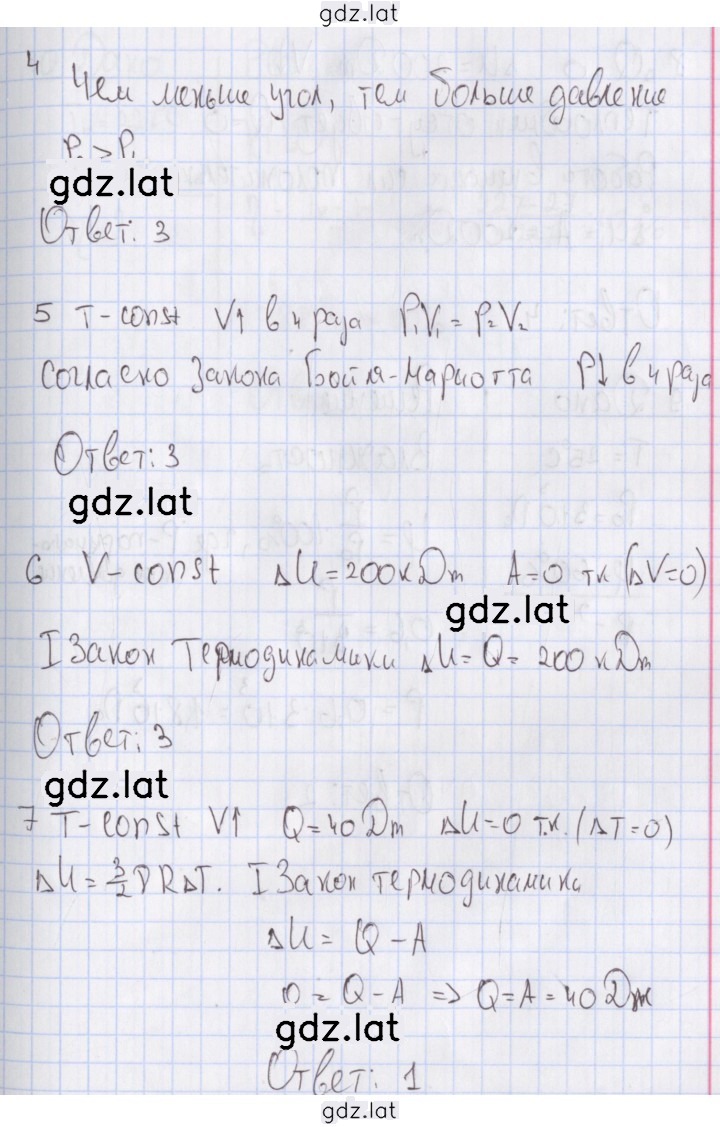 gdz.lat
4
Чем меньше угол, тем больше давление
gdz.lat
Ответ: 3
5 T-const V↑ в 4 раза P₁V₁ = P₂V₂
Согласно Закона Бойля-Мариотта P↓ в 4 раза
Ответ: 3
gdz.lat
6 V-const ΔU=200кДж A=0 т.к (ΔV=0)
gdz.lat
I Закон Термодинамики ΔU=Q= 200 кДж
Ответ: 3
gdz.lat
7 T-const V↑ Q=40 Дж ΔU=0 т.к. (ΔT=0)
ΔU= 3/2 νRΔT. I Закон термодинамики
ΔU= Q-A
0 = Q-A => Q=A=40 Дж
gdz.lat
Ответ: 1
gdz.lat